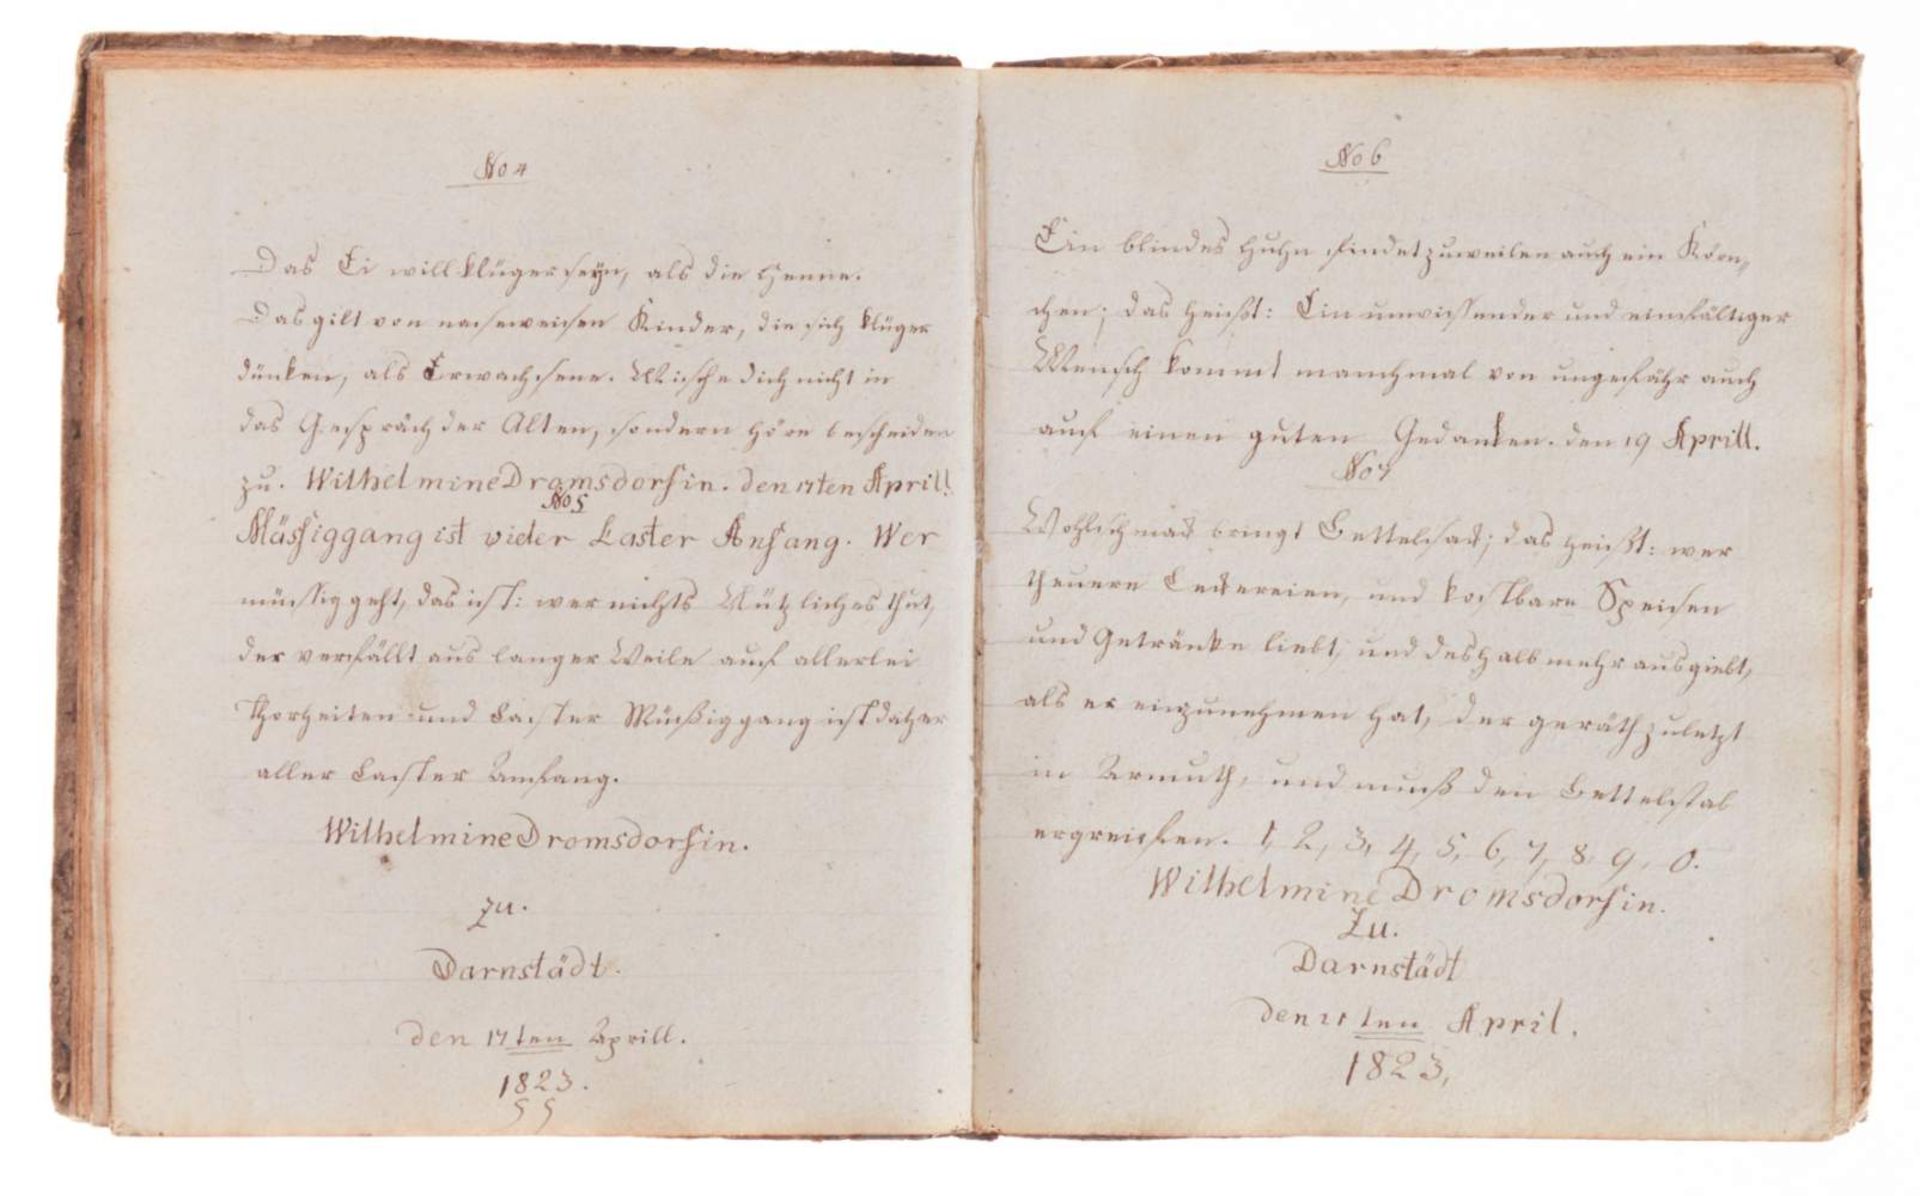 No 4
Das Ei will klüger seyn, als die Henne.
Das gilt von naseweisen Kinder, die sich klüger
dünken, als Erwachsene. Mische dich nicht in
das Gespräch der Alten, sondern höre bescheiden
zu. Wilhelmine Dromsdorfin. den 17ten Aprill.
No 5
Müssiggang ist vieler Laster Anfang. Wer
müssig geht, das ist: wer nichts Nützliches thut,
der verfällt aus langer Weile auf allerlei
Thorheiten und Laster Müßiggang ist daher
aller Laster Anfang.
Wilhelmine Dromsdorfin.
zu.
Darnstädt.
den 17ten Aprill.
1823.
No 6
Ein blindes Huhn findet zuweilen auch ein Körn„
chen; das heißt: Ein unwissender und einfältiger
Mensch kommt manchmal von ungefähr auch
auf einen guten Gedanken. den 19 Aprill.
No 7
Wohlschmack bringt Bettelsack; das heißt: wer
theuere Leckereien, und kostbare Speisen
und Getränke liebt, und deshalb mehr ausgiebt,
als er einzunehmen hat, der geräth zuletzt
in Armuth, und muß den Bettelstab
ergreifen. 1, 2, 3, 4, 5, 6, 7, 8, 9, 0.
Wilhelmine Dromsdorfin.
Zu.
Darnstädt
den 21ten April.
1823,